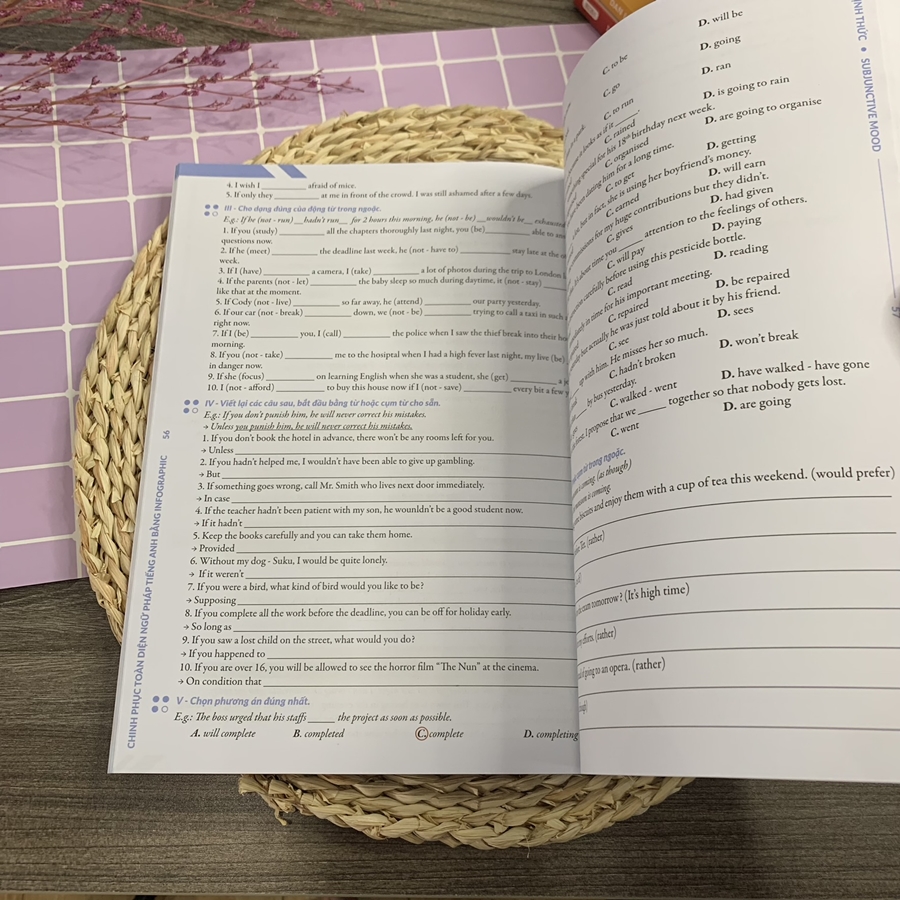 4. I wish I __________ afraid of mice.
5. If only they __________ at me in front of the crowd. I was still ashamed after a few days.
III - Cho dạng đúng của động từ trong ngoặc.
E.g.: If he (not - run) __hadn't run__ for 2 hours this morning, he (not - be) __wouldn't be__ exhausted
1. If you (study) __________ all the chapters thoroughly last night, you (be) __________ able to
questions now.
2. If he (meet) __________ the deadline last week, he (not - have to) __________ stay late at the
week.
3. If I (have) __________ a camera, I (take) __________ a lot of photos during the trip to London
4. If the parents (not - let) __________ the baby sleep so much during daytime, it (not - stay) __________
like that at the moment.
5. If Cody (not - live) __________ so far away, he (attend) __________ our party yesterday.
6. If our car (not - break) __________ down, we (not - be) __________ trying to call a taxi in such
right now.
7. If I (be) __________ you, I (call) __________ the police when I saw the thief break into their
morning.
8. If you (not - take) __________ me to the hosiptal when I had a high fever last night, my live (be)
in danger now.
9. If she (focus) __________ on learning English when she was a student, she (get) __________ a
10. I (not - afford) __________ to buy this house now if I (not - save) __________ every bit a few
IV - Viết lại các câu sau, bắt đầu bằng từ hoặc cụm từ cho sẵn.
E.g.: If you don't punish him, he will never correct his mistakes.
→ Unless you punish him, he will never correct his mistakes.
1. If you don't book the hotel in advance, there won't be any rooms left for you.
→ Unless
2. If you hadn't helped me, I wouldn't have been able to give up gambling.
→ But
3. If something goes wrong, call Mr. Smith who lives next door immediately.
→ In case
4. If the teacher hadn't been patient with my son, he wouldn't be a good student now.
→ If it hadn't
5. Keep the books carefully and you can take them home.
→ Provided
6. Without my dog - Suku, I would be quite lonely.
→ If it weren't
7. If you were a bird, what kind of bird would you like to be?
→ Supposing
8. If you complete all the work before the deadline, you can be off for holiday early.
→ So long as
9. If you saw a lost child on the street, what would you do?
→ If you happened to
10. If you are over 16, you will be allowed to see the horror film "The Nun" at the cinema.
→ On condition that
V - Chọn phương án đúng nhất.
E.g.: The boss urged that his staffs _____ the project as soon as possible.
A. will complete B. completed C. complete D. completing
56
CHINH PHỤC TOÀN DIỆN NGỮ PHÁP TIẾNG ANH BẰNG INFOGRAPHIC
C. to be D. will be
C. go D. going
C. to run D. ran
looks as if it _____.
C. rained D. is going to rain
special for his 18th birthday next week.
C. organised D. are going to organise
him for a long time.
C. to get D. getting
but in fact, she is using her boyfriend's money.
C. earned D. will earn
for my huge contributions but they didn't.
C. gives D. had given
about time you _____ attention to the feelings of others.
C. will pay D. paying
carefully before using this pesticide bottle.
C. read D. reading
in time for his important meeting.
C. repaired D. be repaired
but actually he was just told about it by his friend.
C. see D. sees
up with him. He misses her so much.
C. hadn't broken D. won't break
by bus yesterday.
C. walked - went D. have walked - have gone
I propose that we _____ together so that nobody gets lost.
C. went D. are going
từ trong ngoặc.
is coming. (as though)
is coming.
biscuits and enjoy them with a cup of tea this weekend. (would prefer)
Tet. (rather)
tomorrow? (It's high time)
efforts. (rather)
of going to an opera. (rather)
THỨC • SUBJUNCTIVE MOOD